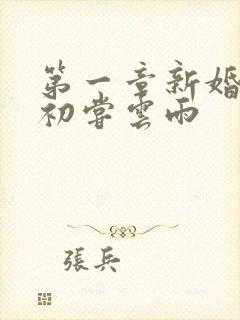 第一章新婚
初嘗雲雨
張兵